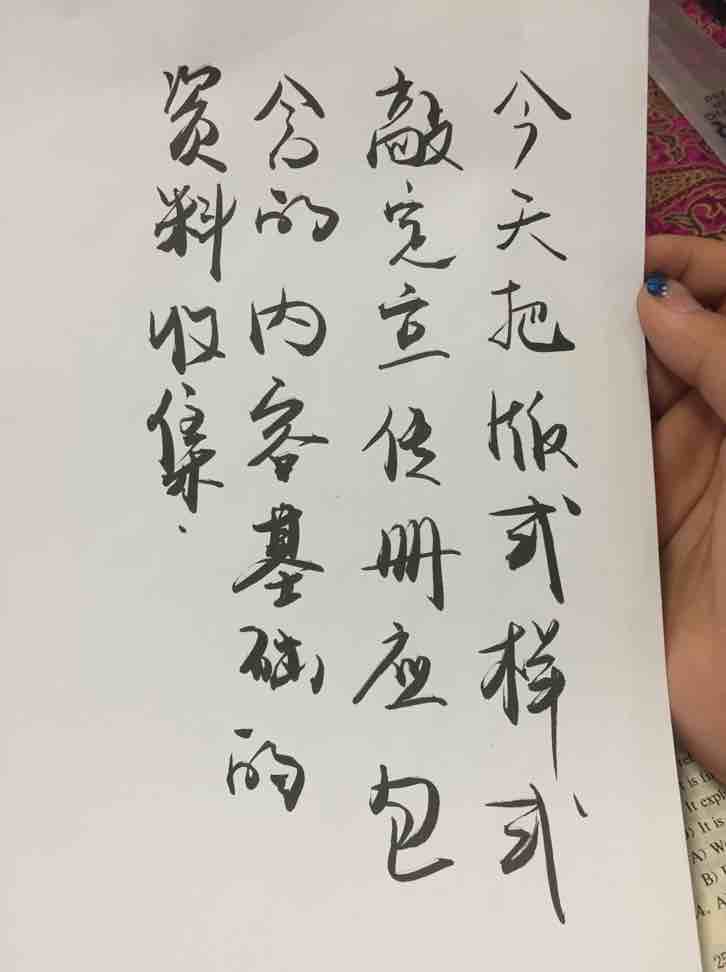 今天把版式样式
敲定宣传册应包
含的内容基础的
资料收集.
It expl
) It is
A) We
B)
A. A